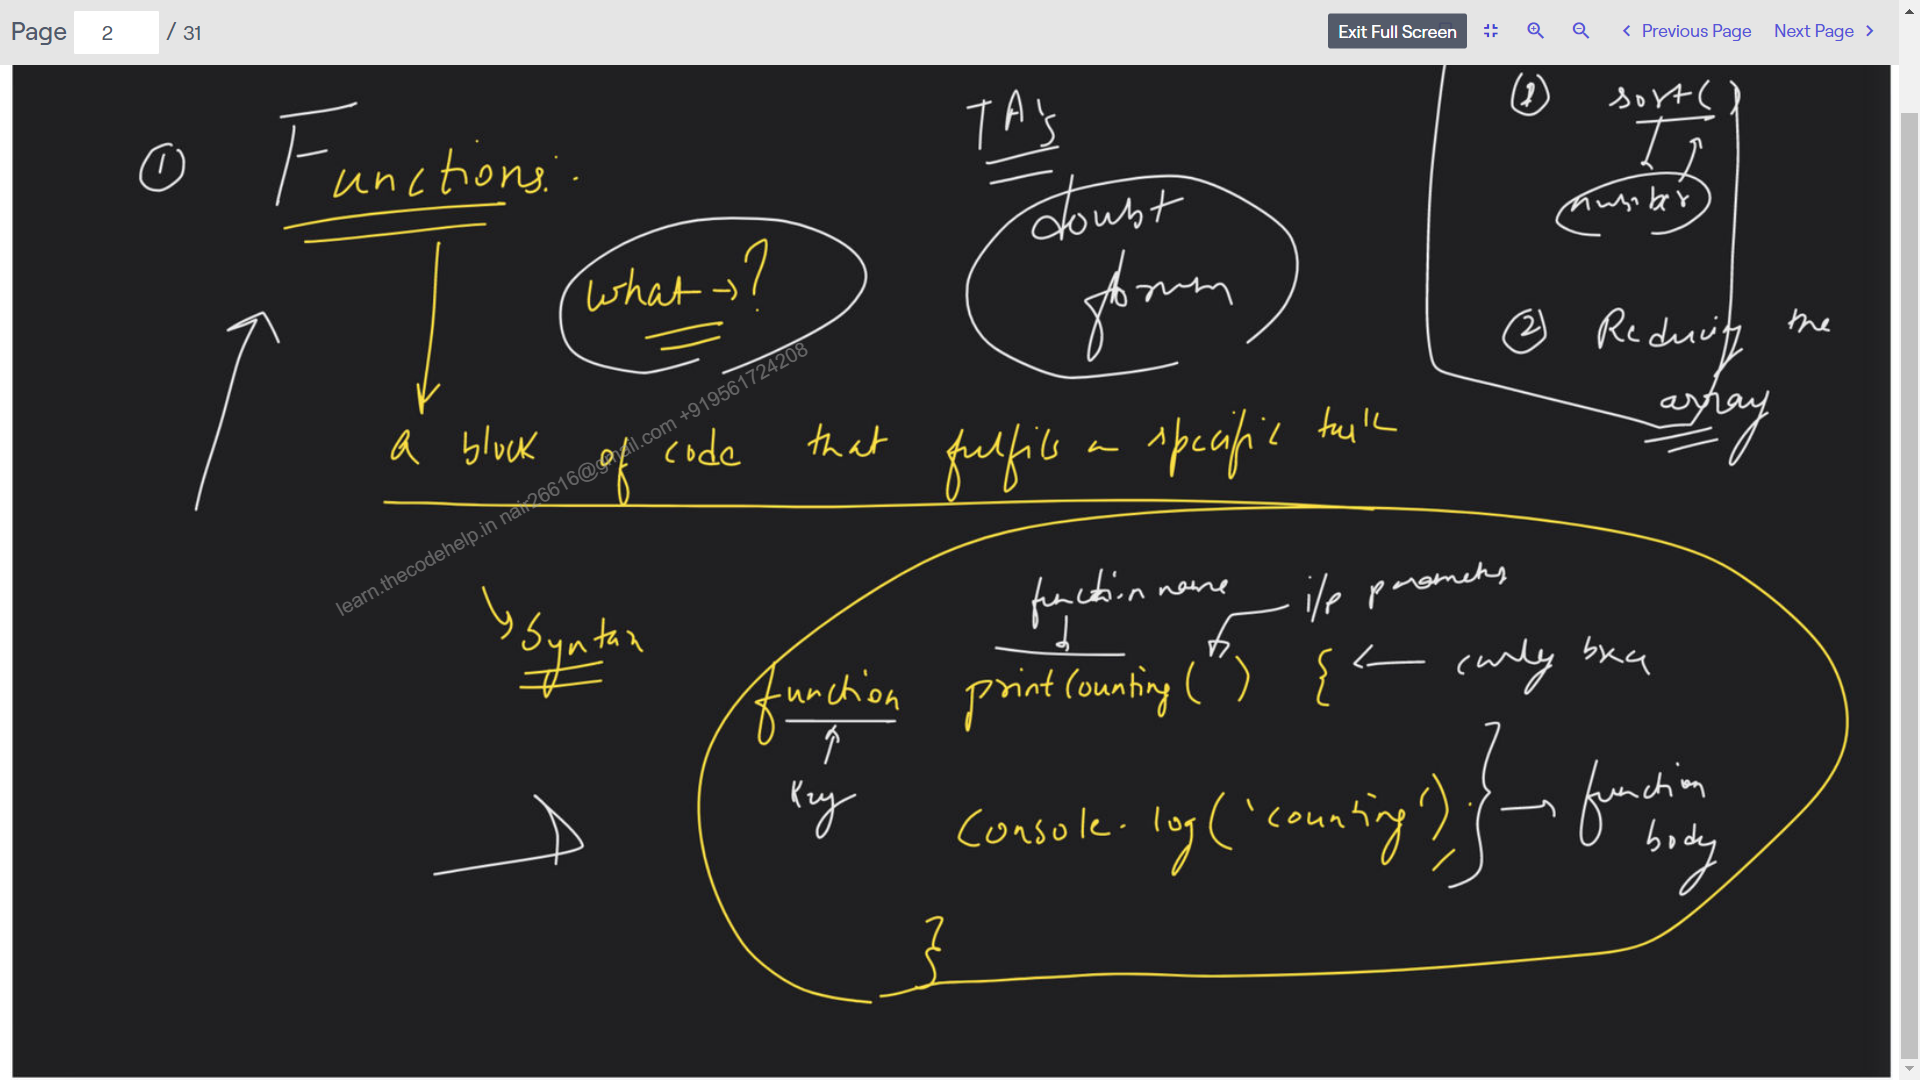 Page 2 / 31 Exit Full Screen Previous Page Next Page
① Functions:
what → ?
TA's
doubt
forum
① sort()
number
② Reducing the
array
a block of code that fulfils a specific task
learn.thecodehelp.in nair26616@gmail.com +919561724208
Syntax
function name i/p parameters
function printCounting( ) { ← curly brac
Key
console.log('counting'); } → function
body
}